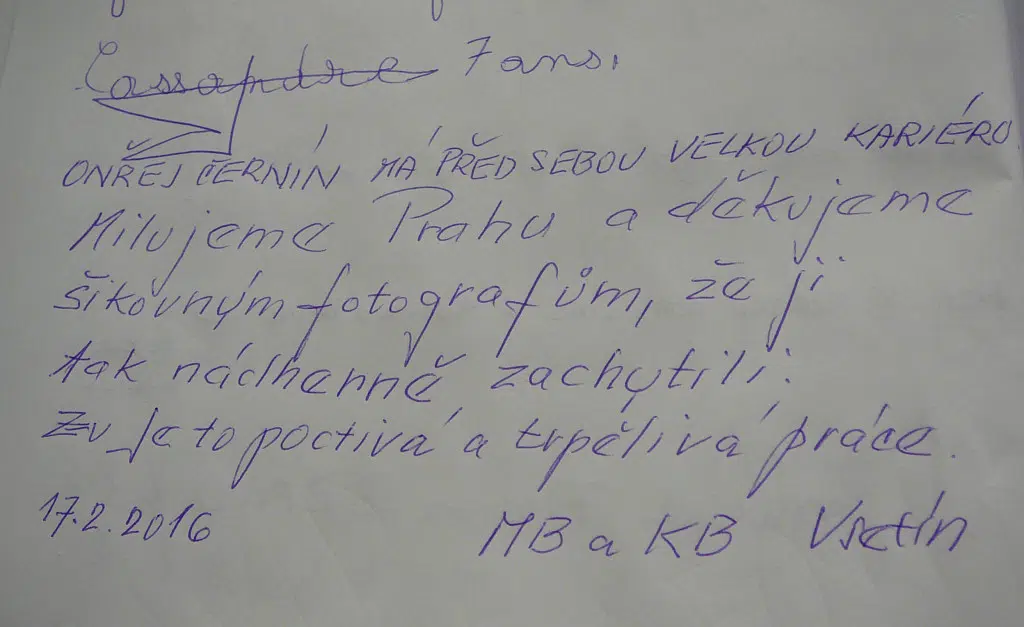 Cassandre 7 ans.
ONŘEJ ČERNÍN MÁ PŘED SEBOU VELKOU KARIÉRU
Milujeme Prahu a děkujeme
šikovným fotografům, že ji
tak nádherně zachytili.
Je to poctivá a trpělivá práce.
17.2.2016 MB a KB Vsetín